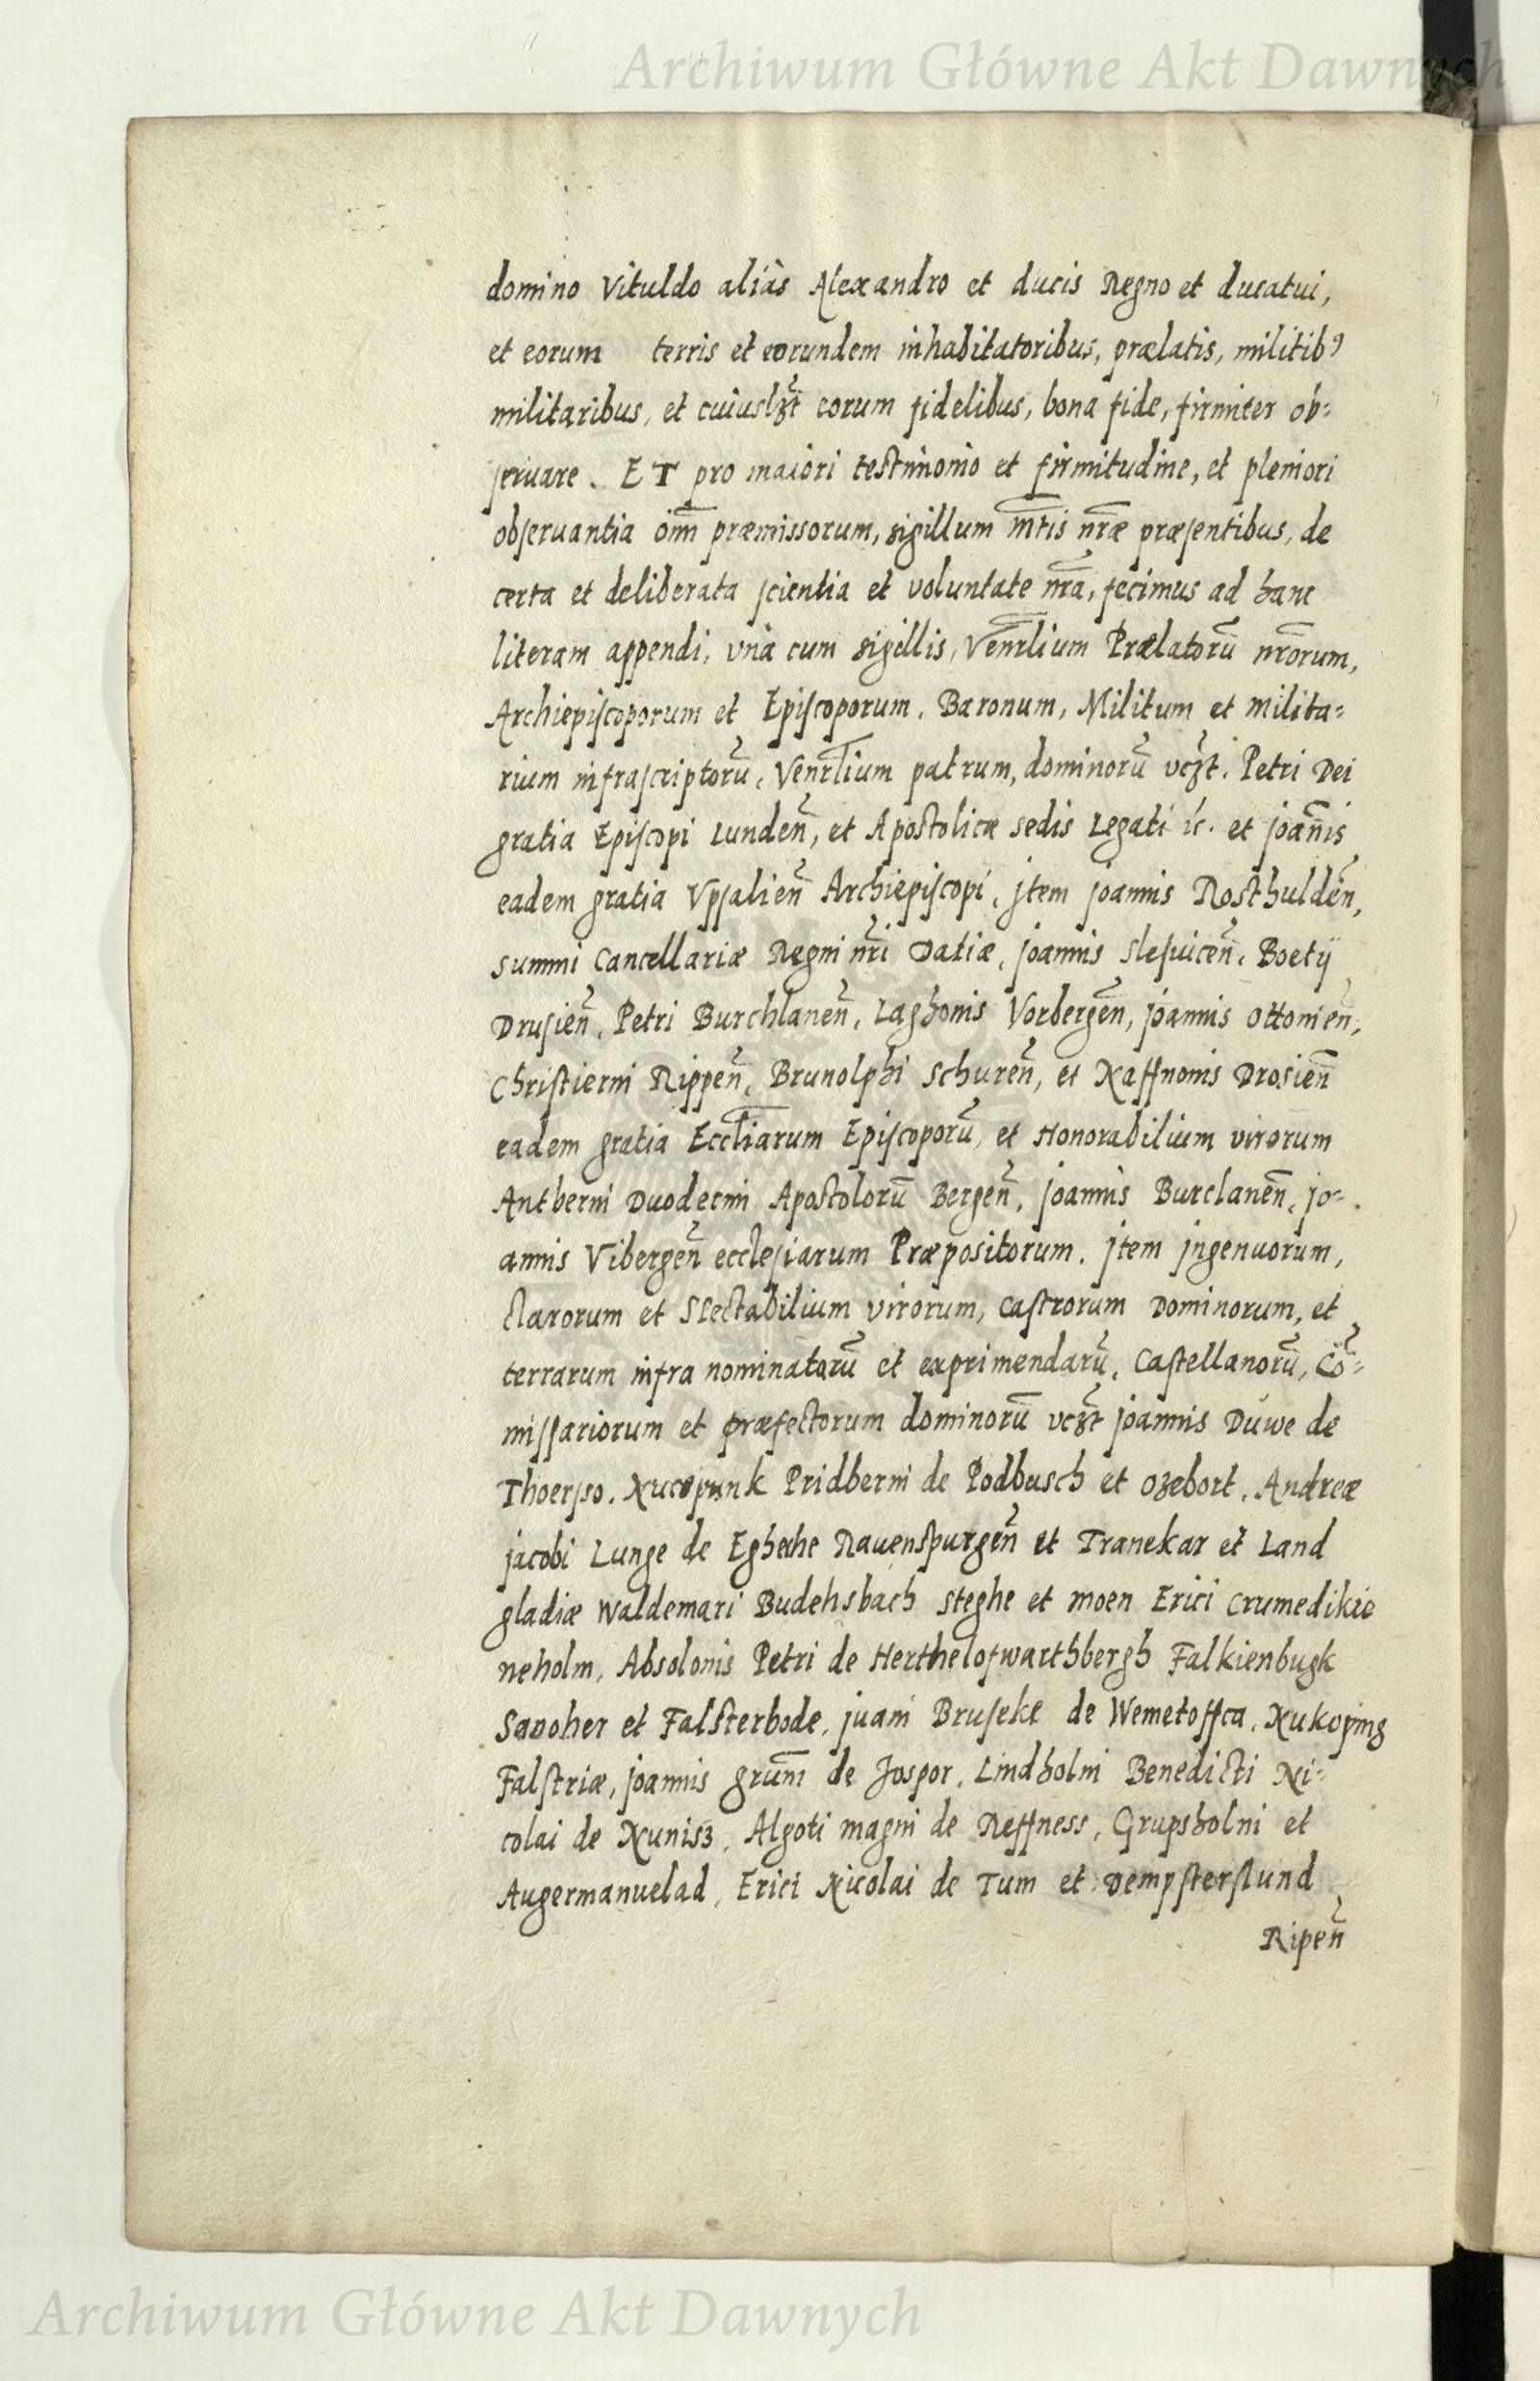 Archiwum Główne Akt Dawnych
domino Vituldo aliàs Alexandro et ducis Regno et ducatui,
et eorum terris et eorundem inhabitatoribus, prælatis, militib9
militaribus, et cuiuslꝫt eorum fidelibus, bona fide, firmiter ob=
seruare. ET pro maiori testimonio et firmitudine, et pleniori
obseruantia om̃ præmissorum, sigillum m̃tis nr̃æ præsentibus, de
certa et deliberata scientia et voluntate nr̃a, fecimus ad hanc
literam appendi, vnà cum sigillis, Venr̃lium Prælatorũ nr̃orum,
Archiepiscoporum et Episcoporum, Baronum, Militum et milita=
rium infrascriptorũ, Venr̃lium patrum, dominorũ vcꝫt. Petri Dei
gratia Episcopi Lundeñ, et Apostolicæ sedis Legati ic. et joañis
eadem gratia Vpsalieñ Archiepiscopi, jtem joannis Rosthuldeñ,
summi Cancellariæ Regni nr̃i Datiæ, joannis Slesuiceñ, Boetij
Drusieñ, Petri Burchlaneñ, Laghonis Vorbergeñ, joannis Ottonieñ,
Christierni Rippeñ, Brunolphi Schureñ, et Naffnonis Drosieñ
eadem gratia Eccl̃iarum Episcoporũ, et Honorabilium virorum
Antberni Duodecim Apostolorũ Bergeñ, joannis Burclaneñ, jo=
annis Vibergeñ ecclesiarum Præpositorum. jtem jngenuorum,
clarorum et Spectabilium virorum, Castrorum Dominorum, et
terrarum infra nominatorũ et exprimendarũ, Castellanorũ, Cõ=
missariorum et præfectorum dominorũ vcꝫt joannis Duwe de
Thoerso. Nucopunk Pridberni de Podbusch et Ozebort, Andreæ
jacobi Lunge de Eghehe Rauenspurgeñ et Tranekar et Land
gladiæ Waldemari Budehsbach Steghe et moen Erici Crumedikie
neholm, Absolonis Petri de Herthelofwarthbergh Falkienbugk
Savoher et Falsterbode, juani Bruseke de Wemetoffca, Nukoping
Falstriæ, joannis grum̃ de Jospor, Lindholm Benedicti Ni=
colai de Nunisz, Algoti magni de Reffness, Grupsholni et
Augermanuelad, Erici Nicolai de Tum et Dempsterslund
Ripeñ
Archiwum Główne Akt Dawnych